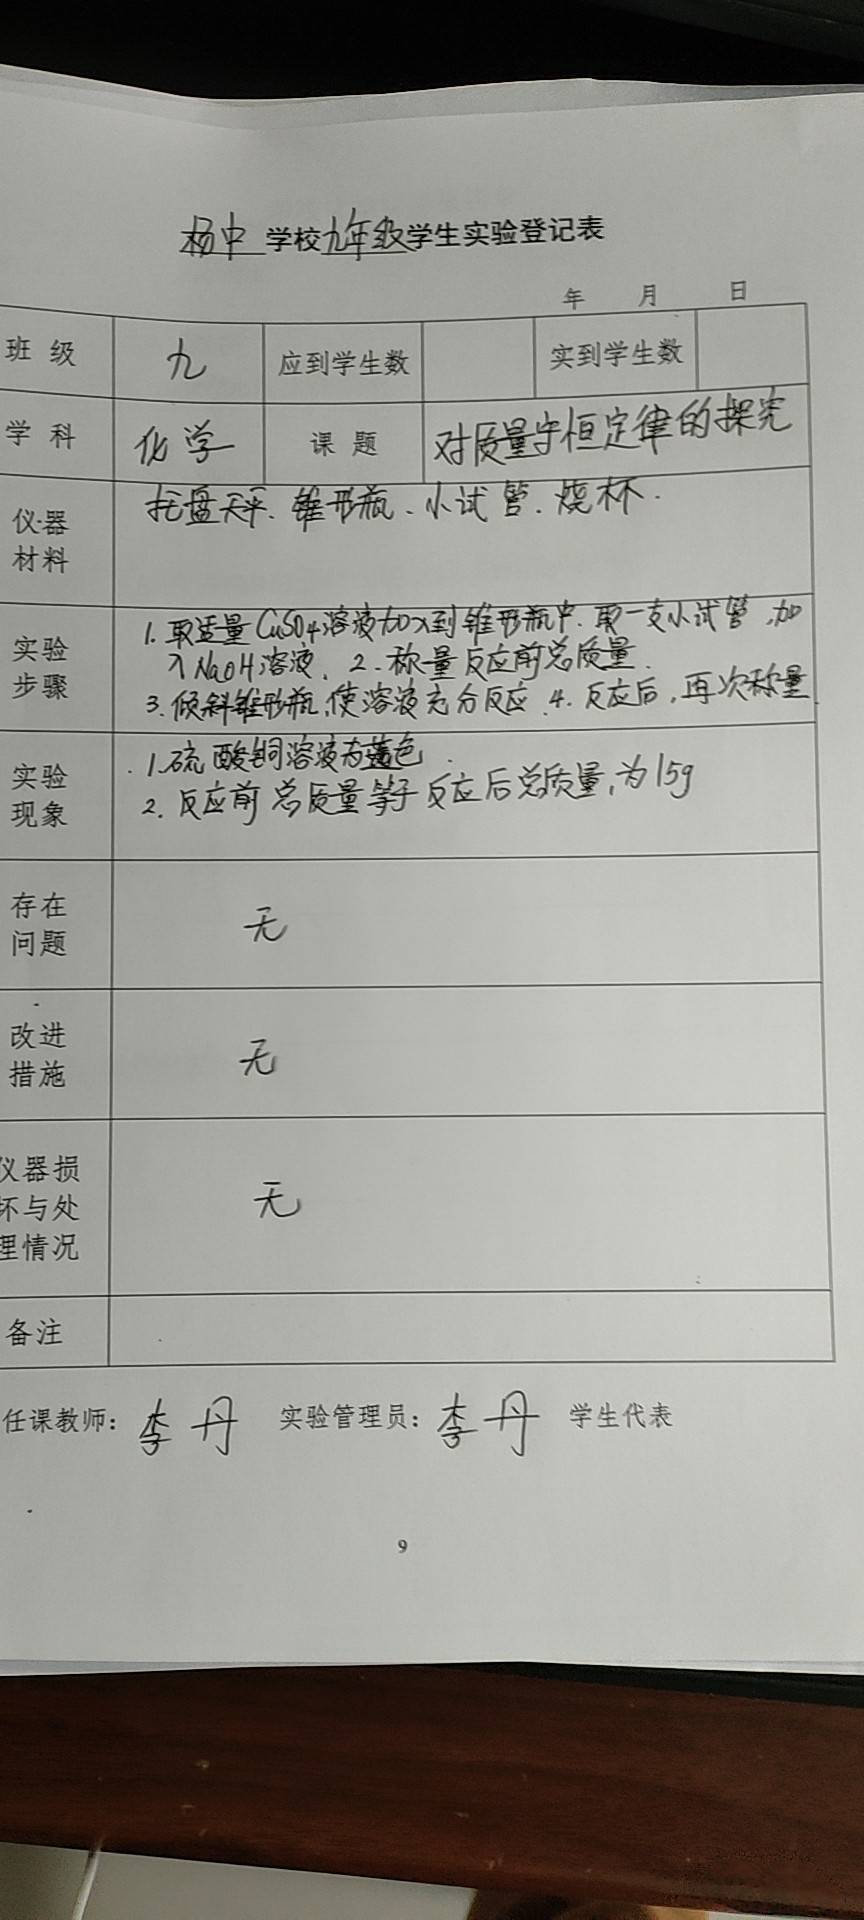 杨中学校九年级学生实验登记表
年 月 日
班 级 九 应到学生数 实到学生数
学 科 化学 课 题 对质量守恒定律的探究
仪器
材料
托盘天平、锥形瓶、小试管、烧杯.
实验
步骤
1. 取适量CuSO4溶液加入到锥形瓶中. 取一支小试管,加
入NaOH溶液. 2. 称量反应前总质量.
3. 倾斜锥形瓶,使溶液充分反应. 4. 反应后,再次称量
实验
现象
1. 硫酸铜溶液为蓝色.
2. 反应前总质量等于反应后总质量,为15g
存在
问题
无
改进
措施
无
仪器损
坏与处
理情况
无
备注
任课教师: 李丹 实验管理员: 李丹 学生代表
9